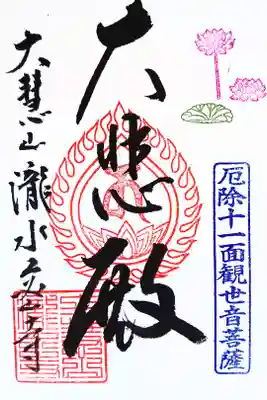 厄除十一面観世音菩薩
大悲殿
大慧山瀧水寺